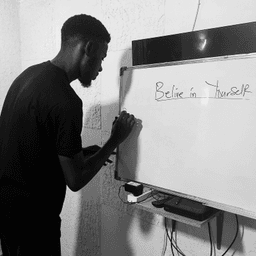 Belive in Yourself